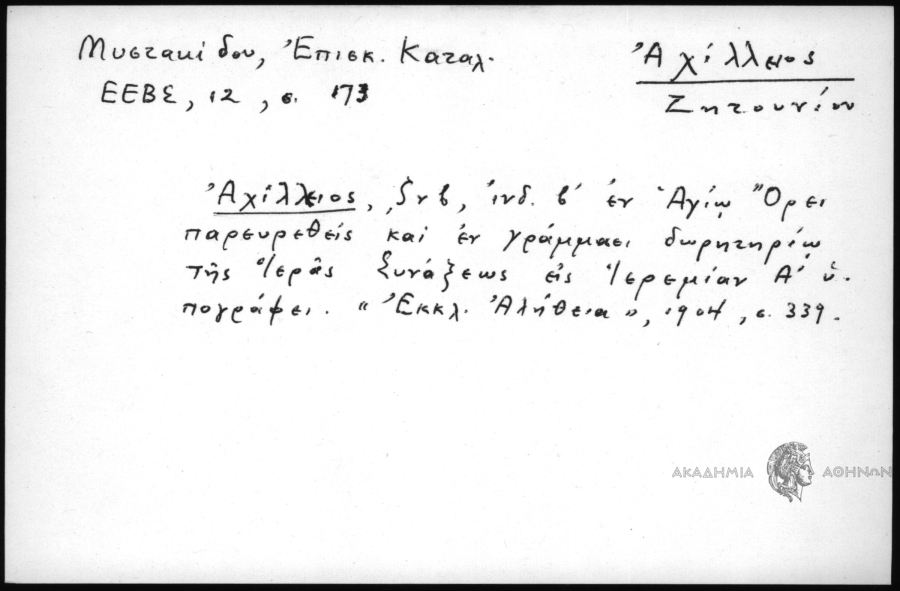 Μυστακίδου, Ἐπισκ. Καταλ.
ΕΕΒΣ, 12, σ. 173
Ἀχίλλειος
Ζητουνίου
Ἀχίλλειος, ͵ζνβ, ἰνδ. β' ἐν Ἁγίῳ Ὄρει
παρευρεθείς καί ἐν γράμμασι δωρητηρίῳ
τῆς Ἱερᾶς Συνάξεως εἰς Ἱερεμίαν Α' ὑ-
πογράφει. "Ἐκκλ. Ἀλήθεια", 1904, σ. 339.
ΑΚΑΔΗΜΙΑ ΑΘΗΝΩΝ